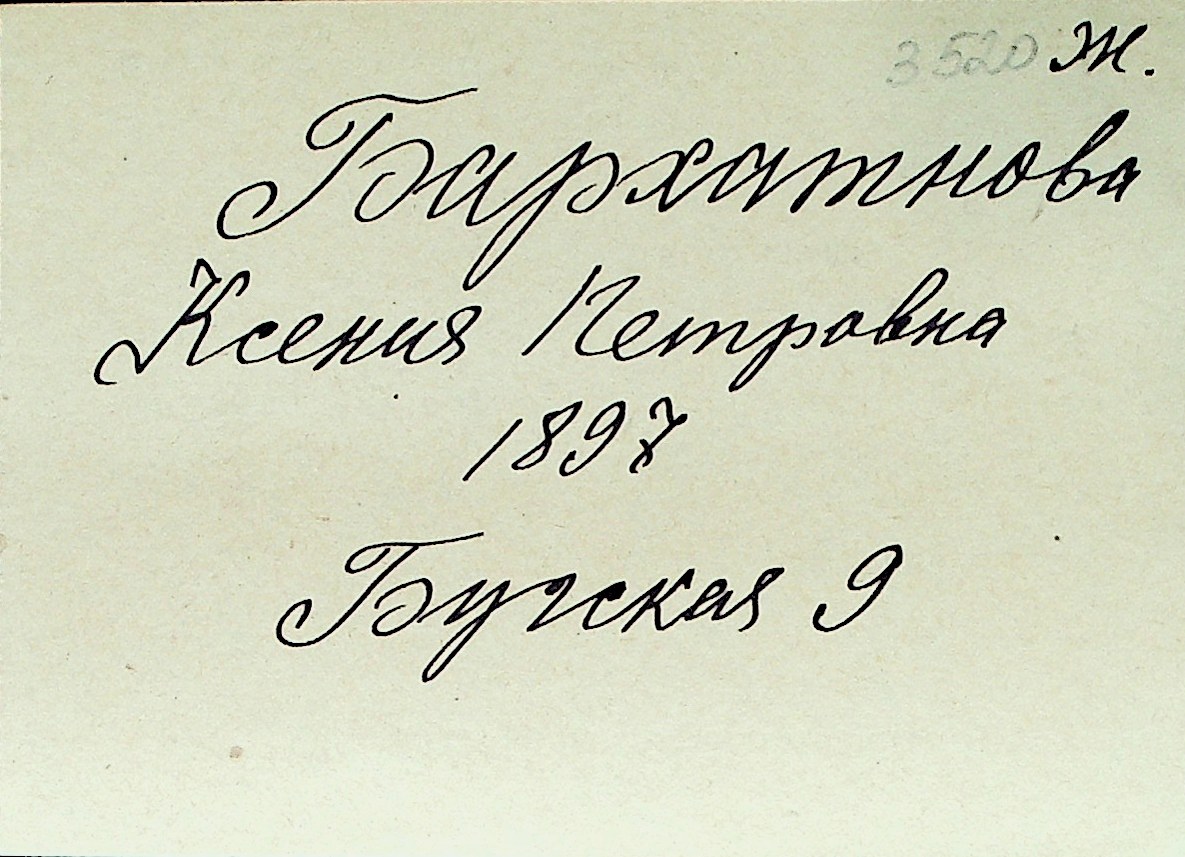 3520 Ж.
Бархатнова
Ксения Петровна
1897
Бугская 9